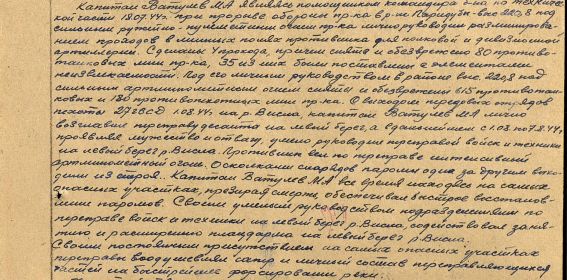 Капитан Ватулев МА являясь помощником командира б-на по техничес-
кой части 18.07.44г. при прорыве обороны пр-ка в р-не выс 220,8 под
сильным ружейно-пулеметным огнем пр-ка лично руководил разминирова-
нием проходов в минных полях противника для полковой и дивизионной
артиллерии. Сделано 4 прохода, причем снято и обезврежено 80 противо-
танковых мин пр-ка, 35 из них были поставлены с элементами
неизвлекаемости. Под его личным руководством в районе выс. 220,8 под
сильным артминометным огнем сняты и обезврежены 615 противотан-
ковых и 180 противопехотных мин пр-ка. С выходом передовых отрядов
пехоты 27 гв СД 1.08.44г. на р. Висла, капитан Ватулев МА лично
возглавил переправу десанта на левый берег, а в дальнейшем с 1.08. по 7.8.44г.
проявляя мужество и отвагу, умело руководил переправой войск и техники
на левый берег р. Висла. Противник вел по переправе интенсивный
артминометный огонь. Осколками снарядов паромы один за другим выхо-
дили из строя. Капитан Ватулев МА все время находясь на самых
опасных участках, презирая смерть, обеспечивал быстрое восстанов-
ление паромов. Своим умелым руководством подразделениями по
переправе войск и техники на левый берег р. Висла, содействовал заня-
тию и расширению плацдарма на левый берег р. Висла.
Своим постоянным присутствием на самых опасных участках
переправы воодушевлял сапер и личный состав переправляющихся
частей на быстрейшее форсирование реки.